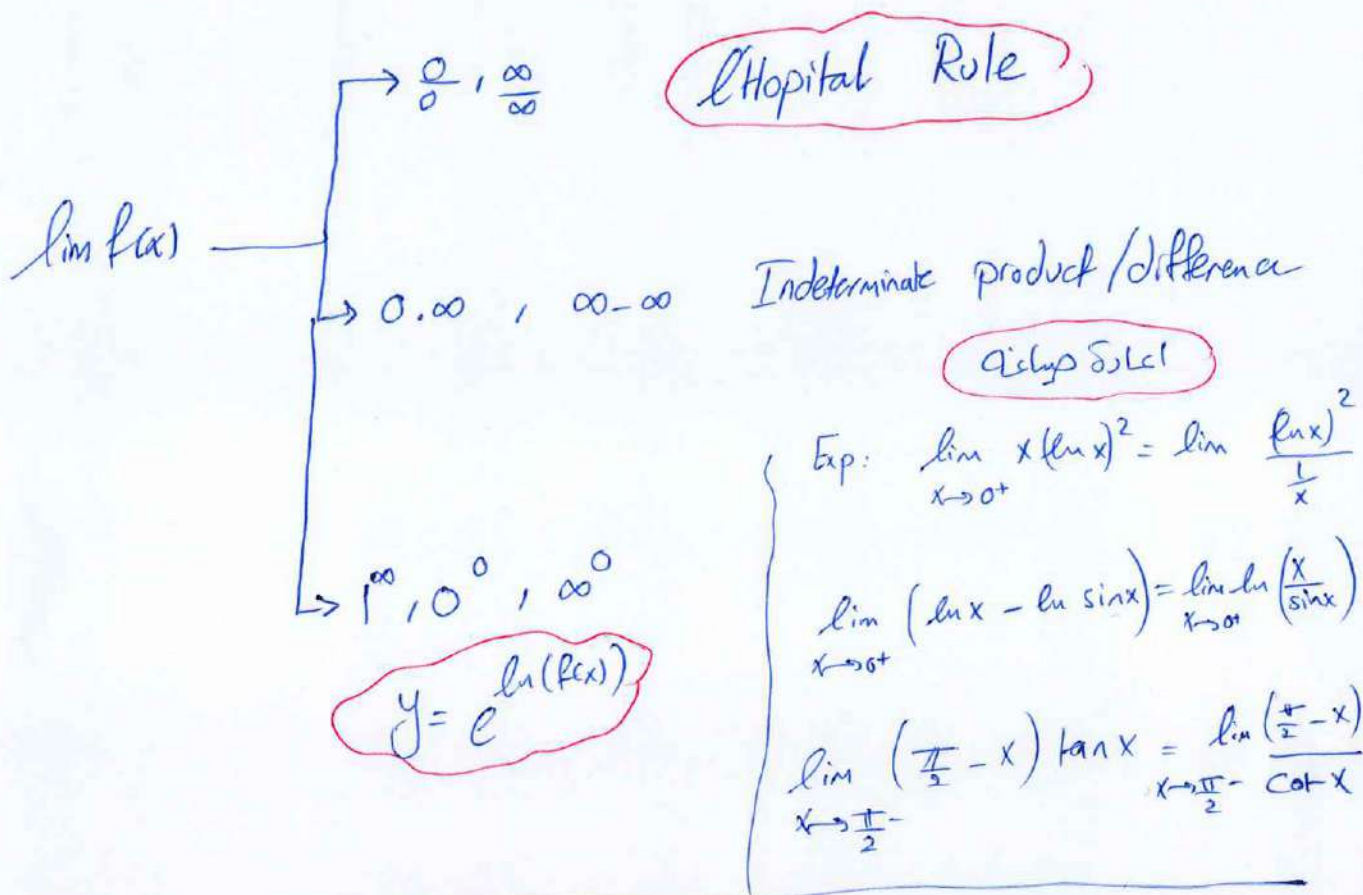 lim f(x)
→ 0/0 , ∞/∞ l'Hopital Rule
→ 0.∞ , ∞-∞ Indeterminate product/difference
اعادة صياغة
Exp: lim x→0⁺ x(ln x)² = lim (ln x)² / (1/x)
lim x→0⁺ (ln x - ln sin x) = lim x→0⁺ ln (x/sin x)
lim x→π/2⁻ (π/2 - x) tan x = lim x→π/2⁻ (π/2 - x) / cot x
→ 1^∞ , 0⁰ , ∞⁰
y = e^ln(f(x))